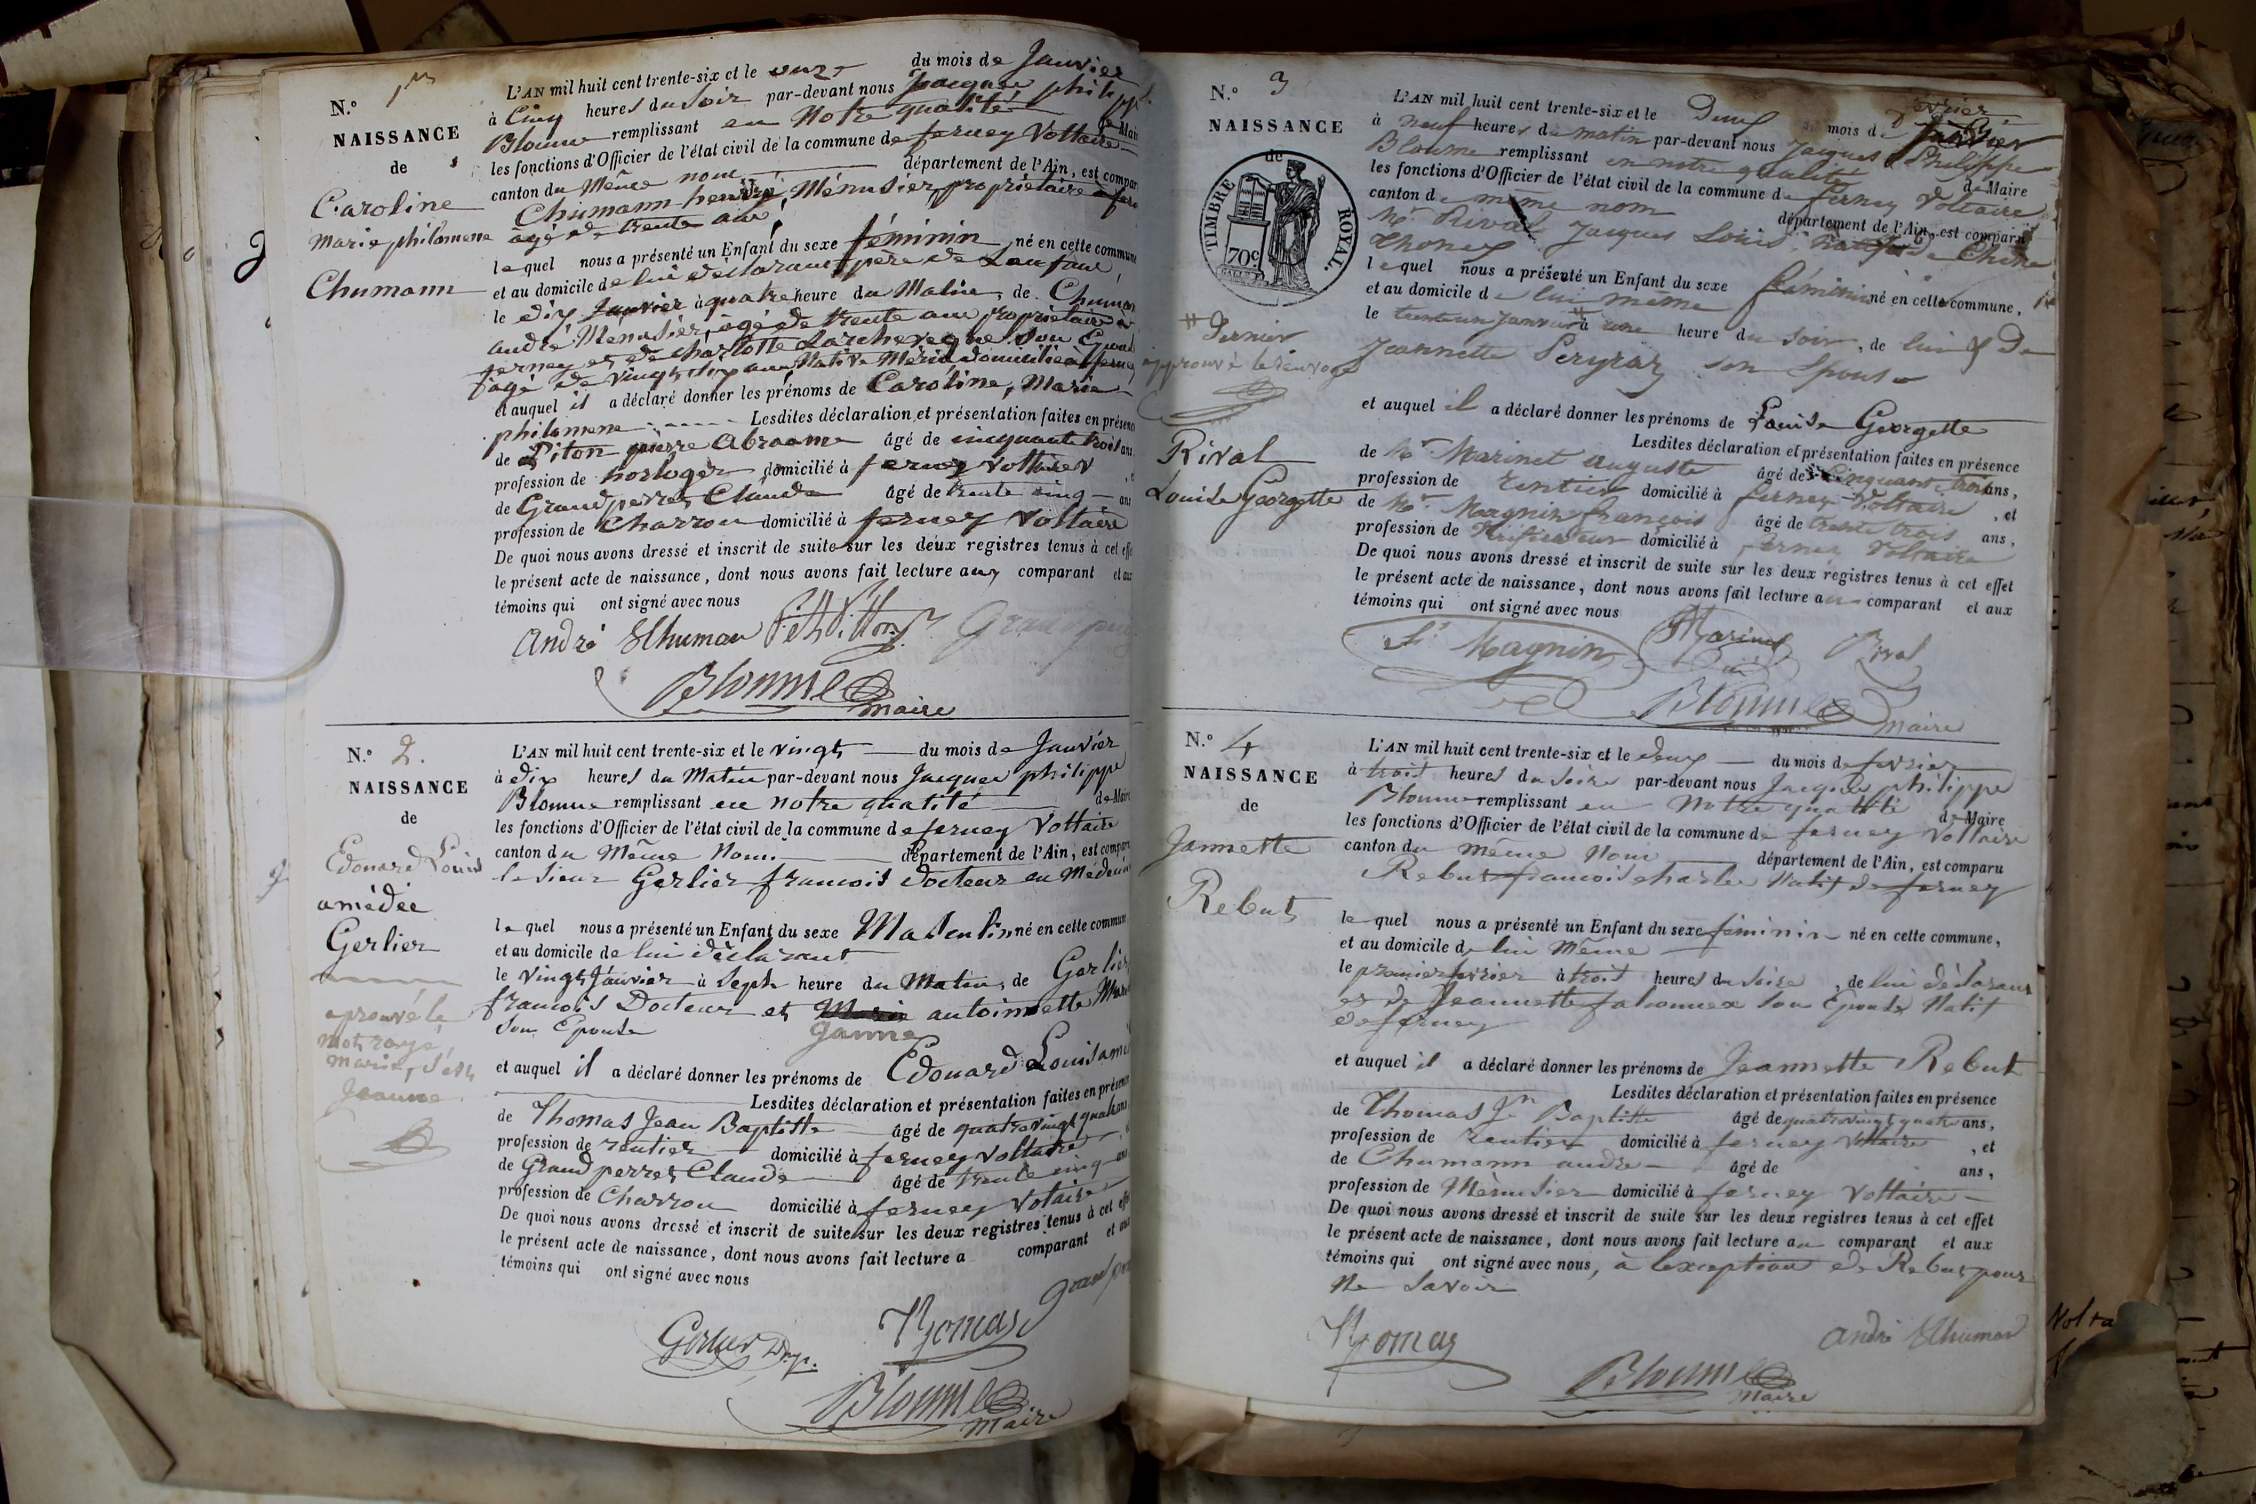 N.º 1er
NAISSANCE
de
Caroline
Marie philomene
Chumann
L'AN mil huit cent trente-six et le onze du mois de Janvier
à Cinq heures du Soir par-devant nous Jacques philippe
Blonme remplissant en Notre qualité de Maire
les fonctions d'Officier de l'état civil de la commune de ferney Voltaire
canton du Même nom département de l'Ain, est comparu
Chumann henri, Ménusier, propriétaire à
âgé de trente ans
lequel nous a présenté un Enfant du sexe féminin, né en cette commune
et au domicile de lui déclarant père de Lenfant,
le dix Janvier à quatre heure du Matin, de Chumann
andré Menusier, âgé de trente ans propriétaire à
ferney et de charlotte Larcheveque Son Epouse
agé de vingt six ans Native domiciliée
et auquel il a déclaré donner les prénoms de Caroline, Marie
philomene Lesdites déclaration et présentation faites en présence
de Piton pierre Abraame âgé de cinquante trois ans
profession de horloger domicilié à ferney Voltaire
de Grandperret Claude âgé de trente cinq ans
profession de Charron domicilié à ferney Voltaire
De quoi nous avons dressé et inscrit de suite sur les deux registres tenus à cet effet
le présent acte de naissance, dont nous avons fait lecture aux comparant et aux
témoins qui ont signé avec nous
andré Schuman
Blonme
Maire
N.º 2.
NAISSANCE
de
Edouard Louis
amédée
Gerlier
aprouvé le
mot rayé,
marie,
Jeanne
L'AN mil huit cent trente-six et le vingt du mois de Janvier
à dix heures du Matin par-devant nous Jacques philippe
Blonme remplissant en notre qualité de Maire
les fonctions d'Officier de l'état civil de la commune de ferney Voltaire
canton du Même Nom département de l'Ain, est comparu
le sieur Gerlier francois docteur en Médecin
lequel nous a présenté un Enfant du sexe Masculin né en cette commune
et au domicile de lui déclarant
le vingt Janvier à Sept heure du Matin, de Gerlier
francois Docteur et Marie antoinette
Son Epouse Janne
et auquel il a déclaré donner les prénoms de Edouard Louis amé
Lesdites déclaration et présentation faites en présence
de Thomas Jean Baptiste âgé de quatrevingt quatre ans
profession de rentier domicilié à ferney Voltaire
de Grandperret Claude âgé de trente cinq ans
profession de Charron domicilié à ferney Voltaire
De quoi nous avons dressé et inscrit de suite sur les deux registres tenus à cet effet
le présent acte de naissance, dont nous avons fait lecture a comparant et aux
témoins qui ont signé avec nous
Gerlier
Thomas
Blonme
Maire
N.º 3
NAISSANCE
de
TIMBRE ROYAL.
70c
# Dernier
approuvé
Rival
Louise Georgette
L'AN mil huit cent trente-six et le Deux du mois de Janvier février
à neuf heures du matin par-devant nous Jacques Philippe
Blonme remplissant en notre qualité de Maire
les fonctions d'Officier de l'état civil de la commune de Ferney Voltaire
canton du même nom département de l'Ain, est comparu
Mr Rival Jacques Louis Natif de Chêne
Thonex
lequel nous a présenté un Enfant du sexe féminin né en cette commune,
et au domicile de lui même
le trente un janvier # à une heure du soir, de lui & De
Jeannette son Epouse
et auquel il a déclaré donner les prénoms de Louise Georgette
Lesdites déclaration et présentation faites en présence
de Mr Marinet auguste âgé de Cinquante trois ans,
profession de rentier domicilié à ferney Voltaire, et
de Mr Magnin françois âgé de trente trois ans,
profession de domicilié à ferney Voltaire
De quoi nous avons dressé et inscrit de suite sur les deux registres tenus à cet effet
le présent acte de naissance, dont nous avons fait lecture au comparant et aux
témoins qui ont signé avec nous
fs Magnin Marinet Rival
Blonme
Maire
N.º 4
NAISSANCE
de
Jannette
Rebut
L'AN mil huit cent trente-six et le deux du mois de fevrier
à trois heures du Soire par-devant nous Jacques philippe
Blonme remplissant en Notre qualité de Maire
les fonctions d'Officier de l'état civil de la commune de ferney Voltaire
canton du même Nom département de l'Ain, est comparu
Rebut francois charles Natif de ferney
lequel nous a présenté un Enfant du sexe féminin né en cette commune,
et au domicile de lui Même
le premier fevrier à trois heures du Soire, de lui déclarant
et de Jeannette falconnex Son Epouse Natif
de ferney
et auquel il a déclaré donner les prénoms de Jeannette Rebut
Lesdites déclaration et présentation faites en présence
de Thomas Jn Baptiste âgé de quatrevingt quatre ans,
profession de rentier domicilié à ferney Voltaire, et
de Chumann andré âgé de ans,
profession de Ménusier domicilié à ferney Voltaire
De quoi nous avons dressé et inscrit de suite sur les deux registres tenus à cet effet
le présent acte de naissance, dont nous avons fait lecture au comparant et aux
témoins qui ont signé avec nous, à lexception de Rebut pour
Ne Savoir
Thomas
andré Schuman
Blonme
Maire